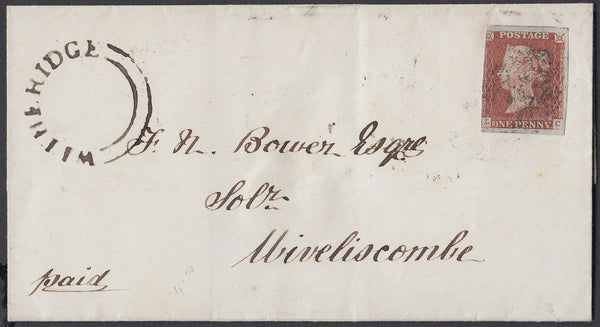 WITHERIDGE
POSTAGE
ONE PENNY
F. N. Bower Esqre
Solr
Wiveliscombe
paid